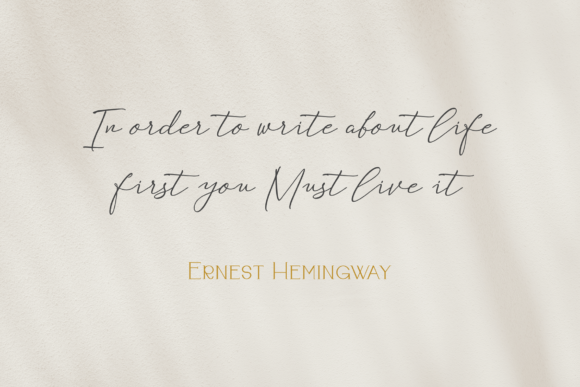 In order to write about life
first you Must live it
Ernest Hemingway